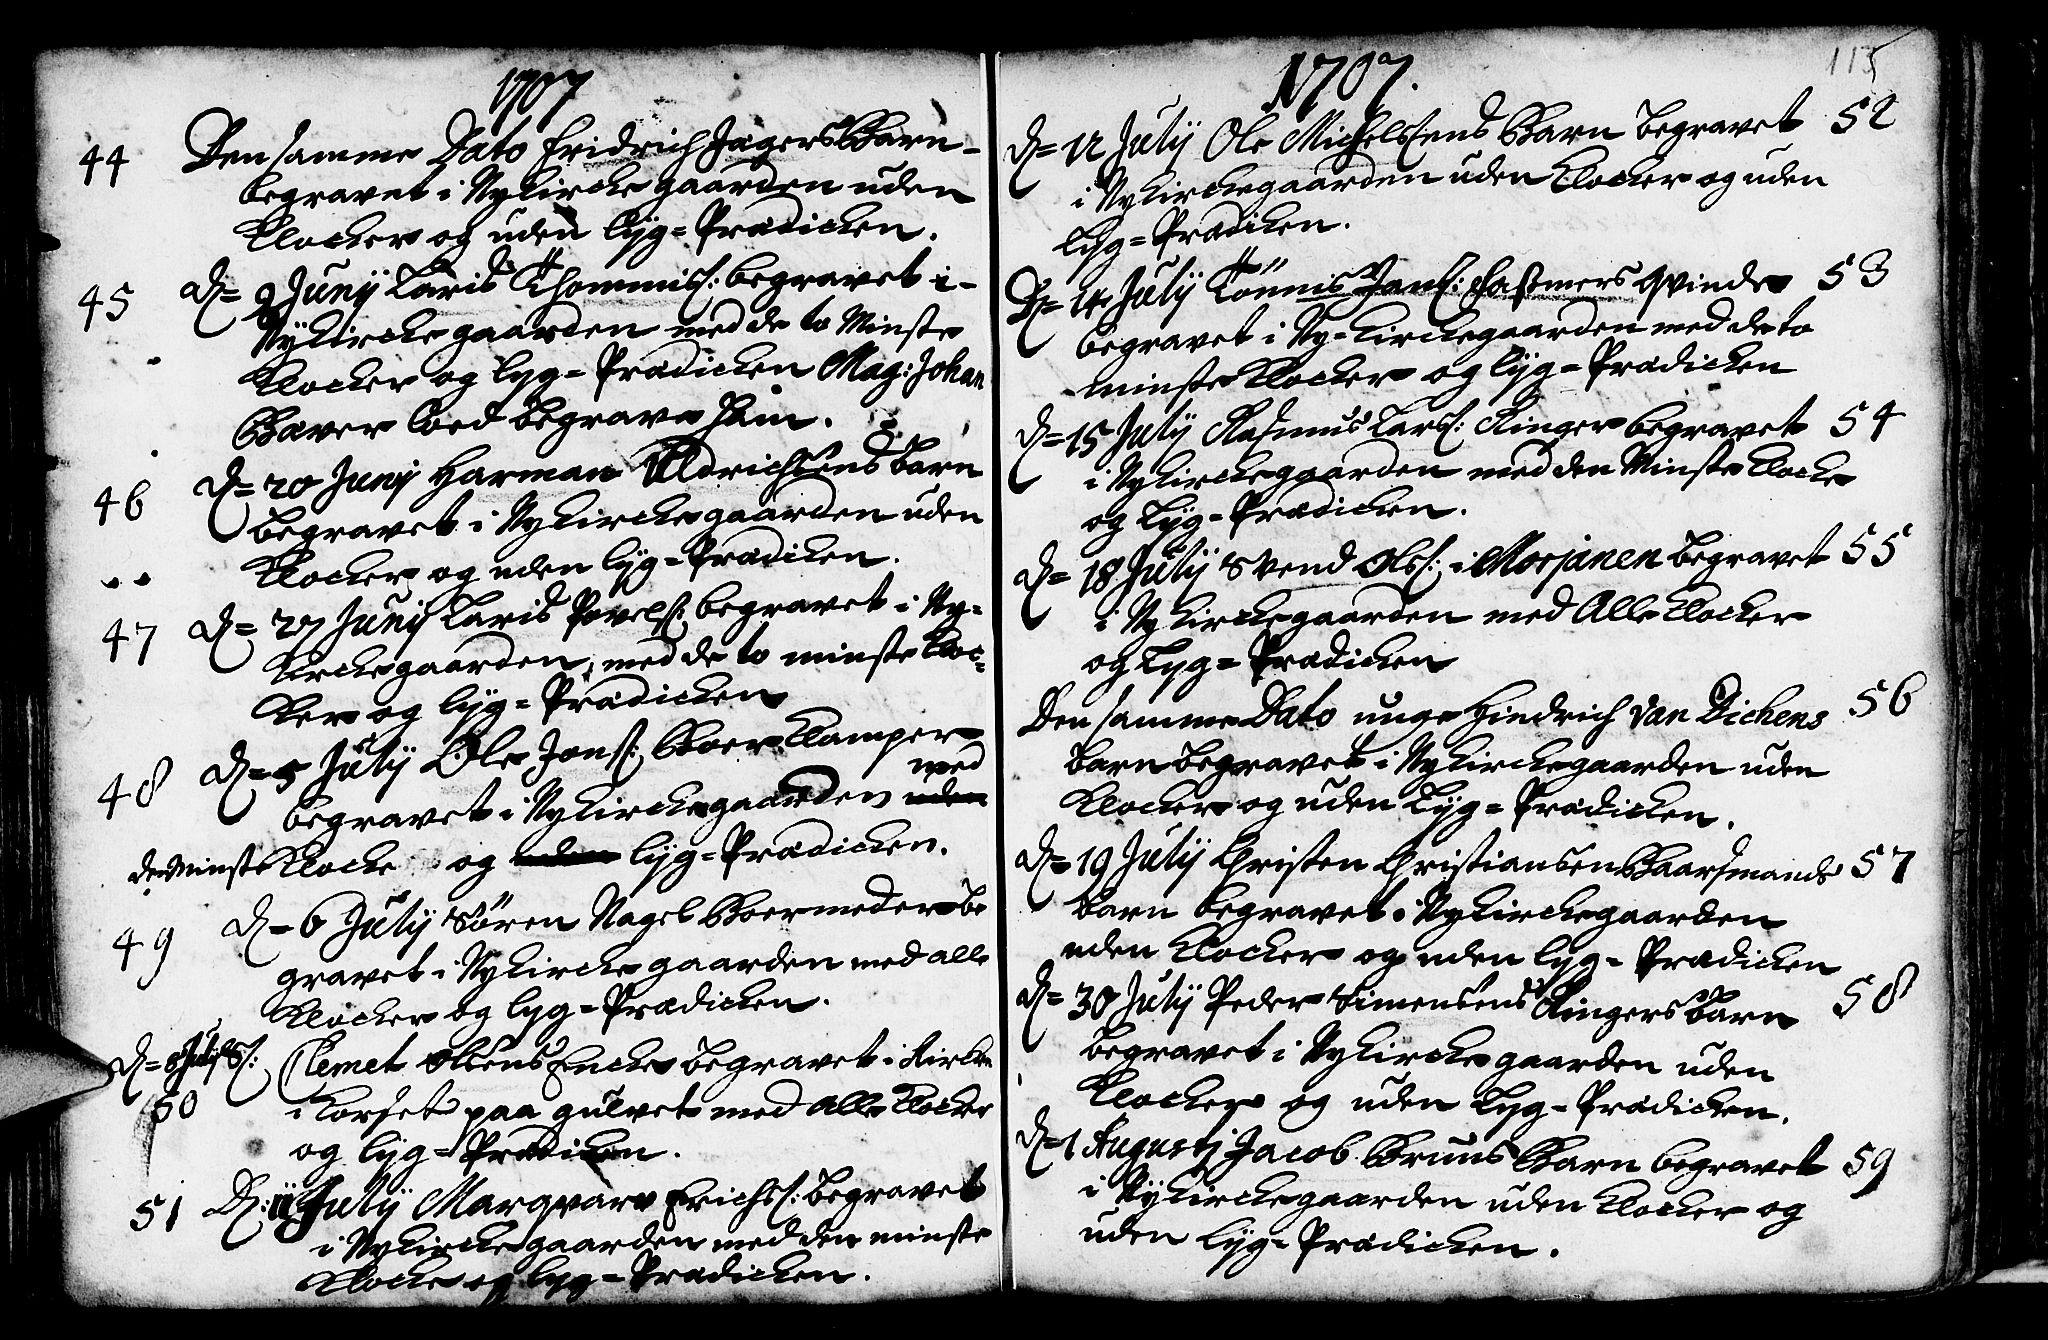 1707
44 Den samme Dato Fridrich Jægers Barn
begravet i Nykirckegaarden uden
Klocker og uden lyg=Prædicken.
45 D= 9 Junij Laris Thommiss: begravet i
Nykirckegaarden med de to Minste
Klocker og lyg=Prædicken Mag: Johan
begrave ham.
46 D= 20 Junij Harman Uldrichsens barn
begravet i Nykirckegaarden uden
Klocker og uden lyg=Prædicken.
47 D= 27 Junij Laris Povelss: begravet i Ny=
kirckegaarden, med de to minste Kloc=
ker og lyg=Prædicken
48 D= 5 Julij Ole Jonss: Boer Klamper
med
begravet i Nykirckegaarden uden
den Minste Klocke og uden lyg=Prædicken.
49 D= 6 Julij Søren Nagel be
gravet i Nykirckegaarden med alle
Klocker og lyg=Prædicken.
D= 8 Julij Clemet Olsens Encke begravet i Kirken
50 i Korset paa gulvet med Alle Klocker
og lyg=Prædicken.
51 D: 11 Julij Marqvar Erichss: begravet
i Nykirckegaarden med den minste
Klocke og lyg=Prædicken.
115
1707.
D= 12 Julij Ole Michelssens Barn begravet 52
i Nykirckegaarden uden Klocker og uden
Lyg=Prædicken.
D= 14 Julij Tönnis Janss: Hastmers Qvinde 53
begravet i Ny=kirckegaarden med de to
minste Klocker og lyg=Prædicken
D= 15 Julij Rasmus Larss: Ringer begravet 54
i Nykirckegaarden med den Minste Klocke
og Lyg=Prædicken.
D= 18 Julij Svend Olss: i Morjanen begravet 55
i Nykirckegaarden med Alle Klocker
og Lyg=Prædicken
Den samme Dato unge Hindrich van Dickens 56
barn begravet i Nykirckegaarden uden
Klocker og uden Lyg=Prædicken.
D= 19 Julij Christen Christiansen Baarsmands 57
barn begravet i Nykirckegaarden
uden Klocker og uden lyg=Prædicken
D= 30 Julij Peder Simensens Ringers barn 58
begravet i Nykirckegaarden uden
Klocker og uden Lyg=Prædicken.
D= 1 Augusti Jacob Bruns Barn begravet 59
i Nykirckegaarden uden Klocker og
uden lyg=Prædicken.